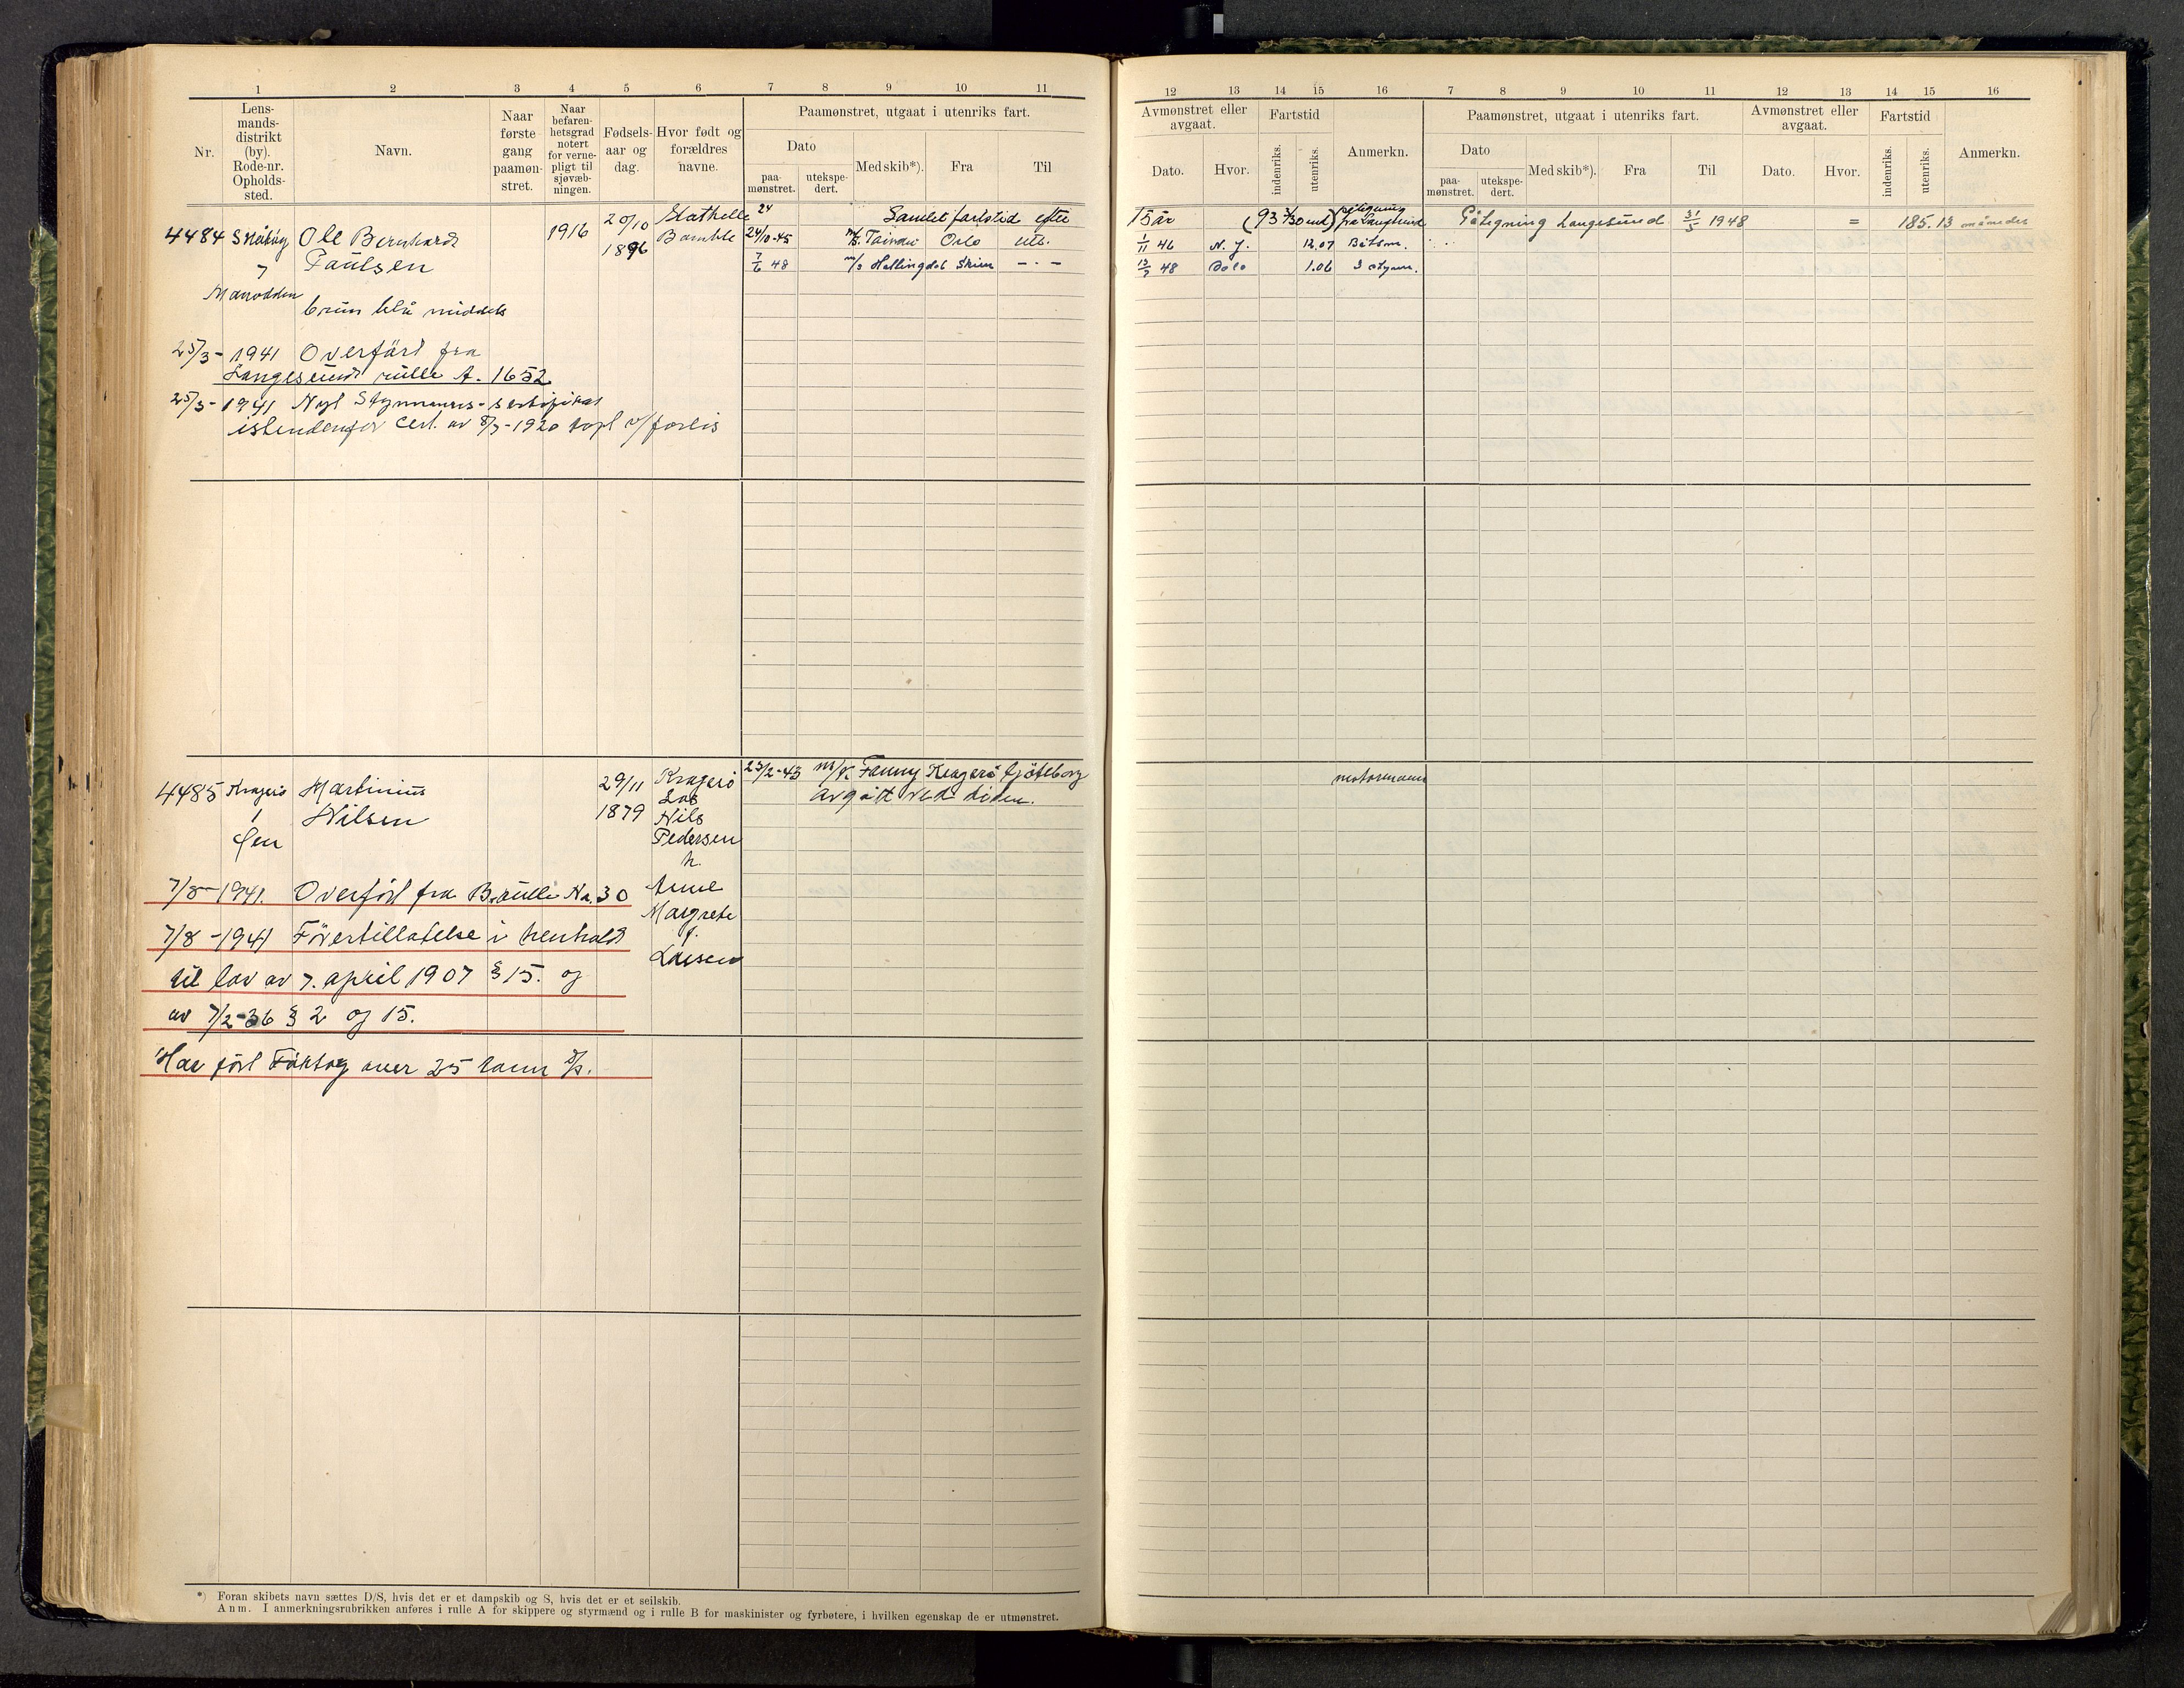 1 2 3 4 5 6 7 8 9 10 11
Nr.
Lens-
mands-
distrikt
(by).
Rode-nr.
Opholds-
sted.
Navn.
Naar
første
gang
paamøn-
stret.
Naar
befaren-
hetsgrad
notert
for verne-
pligt til
sjøvæb-
ningen.
Fødsels-
aar og
dag.
Hvor født og
forældres
navne.
Paamønstret, utgaat i utenriks fart.
Dato
paa-
mønstret.
utekspe-
dert.
Med skib*).
Fra
Til
4484
Ole Bernhard
Paulsen
1916
20/10
1896
Stathelle
Bamble
Samlet fartstid efter
24/10-45 Oslo utr.
7/6 48 m/s Hallingdal Skien – · –
brun blå middels
25/3- 1941 Overført fra
Langesunds rulle A. 1652
25/3- 1941 Nyt Styrmanns-sertifikat
istendenfor Cert. av 8/7-1920 tapt v/ forlis
4485
Kragerø
1
Martinius
Nilsen
29/11
1879
Kragerø
Nils
Pedersen
h.
Anne
Margrete
f.
Larsen
23/2-43 m/k Fanny Kragerø Gjøteborg
avgått ved døden.
7/8-1941. Overført fra B.rulle Nr. 30
7/8-1941 Førertillatelse i henhold
til lov av 7. april 1907 § 15. og
av 7/2-36 § 2 og 15.
Har ført Fartøy over 25 tonn
*) Foran skibets navn sættes D/S, hvis det er et dampskib og S, hvis det er et seilskib.
Anm. I anmerkningsrubrikken anføres i rulle A for skippere og styrmænd og i rulle B for maskinister og fyrbøtere, i hvilken egenskap de er utmønstret.
12 13 14 15 16 7 8 9 10 11 12 13 14 15 16
Avmønstret eller
avgaat.
Dato.
Hvor.
Fartstid
indenriks.
utenriks.
Anmerkn.
Paamønstret, utgaat i utenriks fart.
Dato
paa-
mønstret.
utekspe-
dert.
Med skib*).
Fra
Til
Avmønstret eller
avgaat.
Dato.
Hvor.
Fartstid
indenriks.
utenriks.
Anmerkn.
15 år
Påtegning Langesund 31/5 1948 = 185.13 måneder
1/11 46 N. Y. 12.07 Båtsm.
13/7 48 Oslo 1.06 3 styrm.
motormann